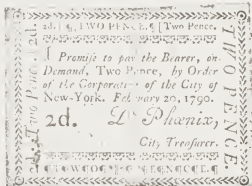 2d. TWO PENCE. Two Pence.
I Promise to pay the Bearer, on
Demand, Two Pence, by Order
of the Corporation of the City of
New-York. February 20, 1790.
2d. D. Phœnix,
City Treasurer.
TWO PENCE
Two Pence. 2d.